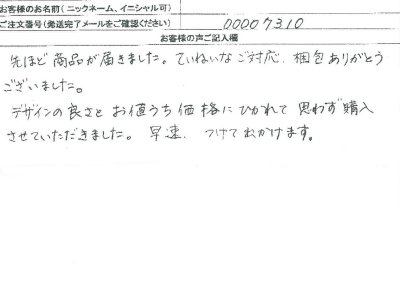 お客様のお名前(ニックネーム、イニシャル可)
ご注文番号(発送完了メールをご確認ください) 00007310
お客様の声ご記入欄
先ほど商品が届きました。ていねいなご対応、梱包ありがとう
ございました。
デザインの良さと お値うち価格にひかれて 思わず購入
させていただきました。 早速、つけておかけます。